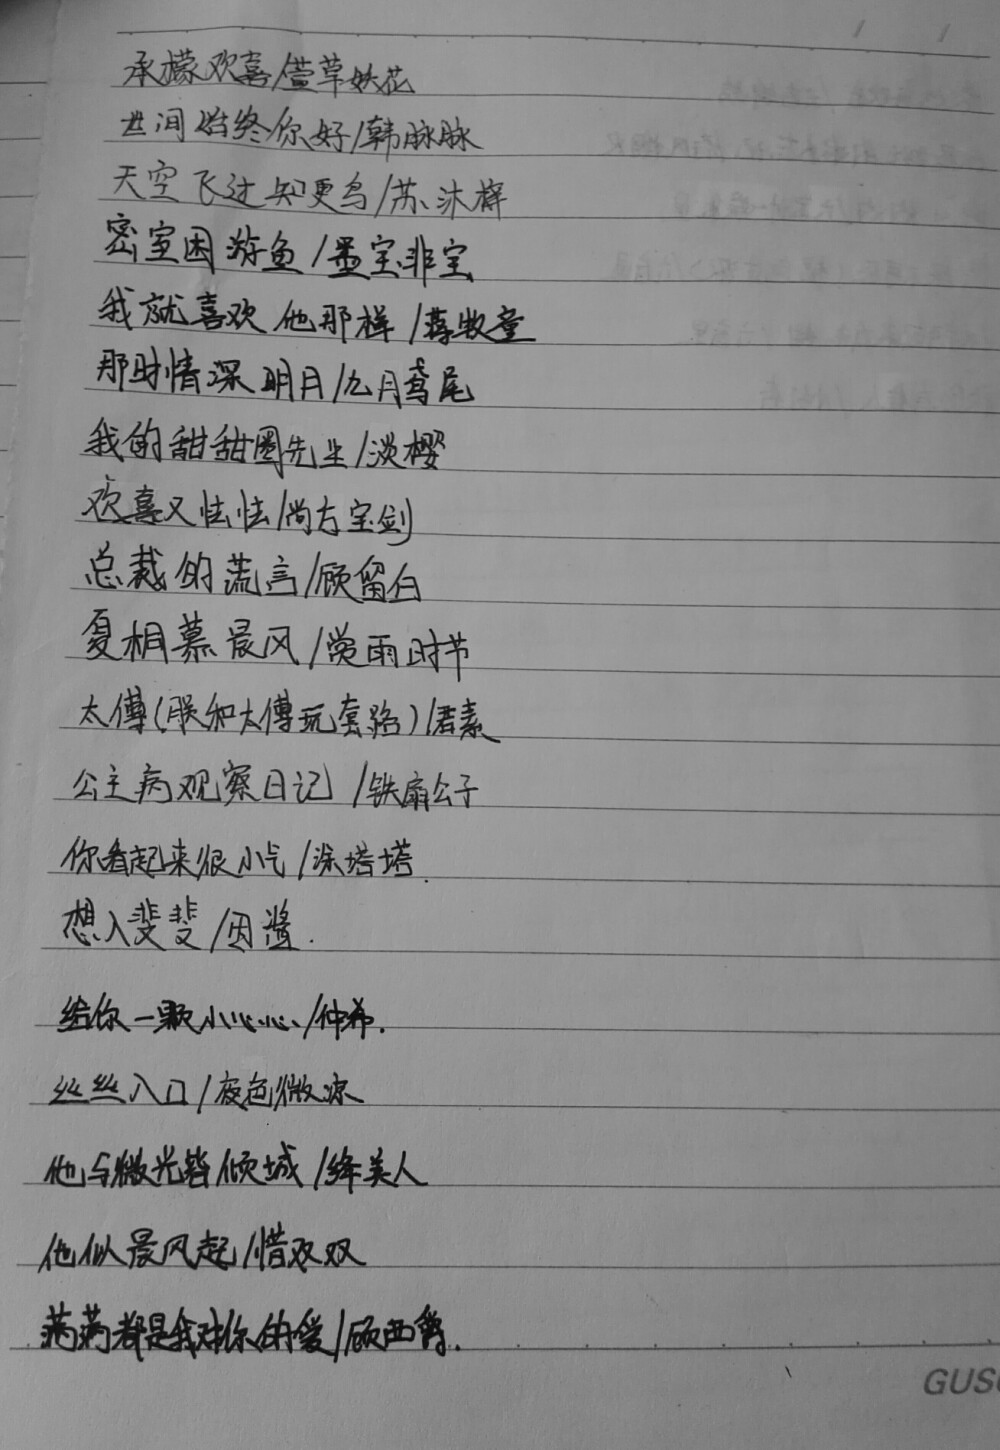 承檬欢喜/萱草妖花
世间始终你好/韩脉脉
天空飞过知更鸟/苏沐梓
密室困游鱼/墨宝非宝
我就喜欢他那样/蒋牧童
那时情深明月/九月鸢尾
我的甜甜圈先生/淡樱
欢喜又怯怯/尚方宝剑
总裁的谎言/顾留白
夏桐慕晨风/赏雨时节
太傅(朕和太傅玩套路)/君素
公主病观察日记/铁扇公子
你看起来很小气/涂塔塔.
想入斐斐/因酱.
给你一颗小心心/仲希.
丝丝入口/夜色微凉
他与微光皆倾城/绛美人
他似晨风起/惜双双
满满都是我对你的爱/顾西爵.
GUS